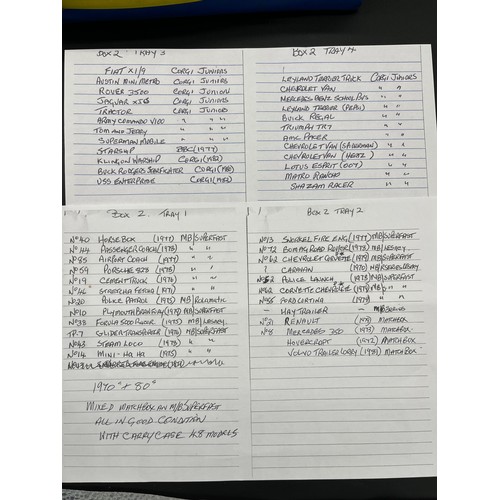 BOX 2 TRAY 3
FIAT X1/9 CORGI JUNIORS
AUSTIN MINI METRO CORGI JUNIORS
ROVER 3500 CORGI JUNIORS
JAGUAR XJS CORGI JUNIORS
TRACTOR CORGI JUNIORS
ARMY COMANDO V100 " "
TOM AND JERRY " "
SUPERMAN MOBILE " "
STARSHIP BBC (1977)
KLINGON WARSHIP CORGI (1982)
BUCK ROGERS STARFIGHTER CORGI (1980)
USS ENTERPRISE CORGI (1982)
BOX 2 TRAY 4
LEYLAND TERRIER TRUCK CORGI JUNIORS
CHEVROLET VAN " "
MERCEDES BENZ SCHOOL BUS " "
LEYLAND TERRIER (PEPSI) " "
BUICK REGAL " "
TRIUMPH TR7 " "
AMC PACER " "
CHEVROLET VAN (SPIDERMAN) " "
CHEVROLET VAN (HEINZ) " "
LOTUS ESPRIT (007) " "
MATRA RANCHO " "
SHAZAM RACER " "
BOX 2 TRAY 1
No 40 HORSE BOX (1977) MB/SUPERFAST
No 44 PASSENGER COACH (1978) " "
No 85 AIRPORT COACH (1977) " "
No 59 PORSCHE 928 (1978) " "
No 19 CEMENT TRUCK (1976) " "
No 46 STRETCHA FETCHA (1971) " "
No 20 POLICE PATROL (1975) MB/ROLAMATIC
No 10 PLYMOUTH GRAN FURY (1979) MB/SUPERFAST
No 38 FORWH 5000 TRACTOR (1975) MB/LESNEY
TP-7 GLIDER TRANSPORTER (1978) MB/SUPERFAST
No 43 STEAM LOCO (1978) " "
No 14 MINI-HA HA (1975) " "
1970s + 80s
MIXED MATCHBOX AN M/B SUPERFAST
ALL IN GOOD CONDITION
WITH CARRY CASE 48 MODELS
BOX 2 TRAY 2
No 13 SNORKEL FIRE ENG (1977) MB/SUPERFAST
No 72 BOMAG ROAD ROLLER (1979) MB/LESNEY
No 62 CHEVROLET CORVETTE (1979) MB/SUPERFAST
? CARAVAN (1970) MB/SUPERFAST
No 52 POLICE LAUNCH (1976) MB/SUPERFAST
No 62 CORVETTE CHEVROLET (1979) MB " "
No 55 FORD CORTINA (1979) " "
- HAY TRAILER - MB/SERIES
No 21 RENAULT (1978) MATCHBOX
No 8 MERCEDES 350 (1973) MATCHBOX
HOVERCRAFT (1972) MATCHBOX
VOLVO TRAILER LORRY (1981) MATCHBOX